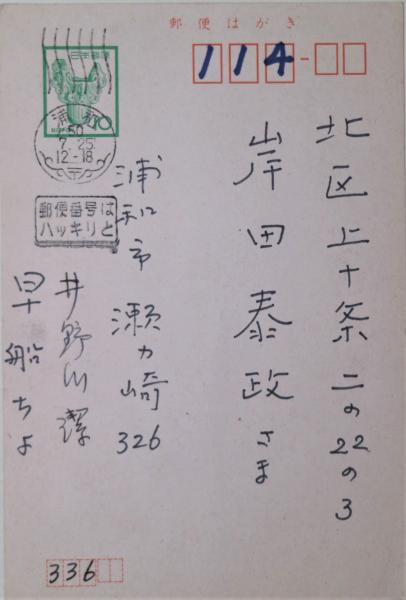 郵便はがき
114
北区上十条二の22の3
岸田泰政さま
日本郵便
10
浦和
50
7.25
12-18
郵便番号は
ハッキリと
浦和市瀬ヶ崎326
井野川潔
早船ちよ
336